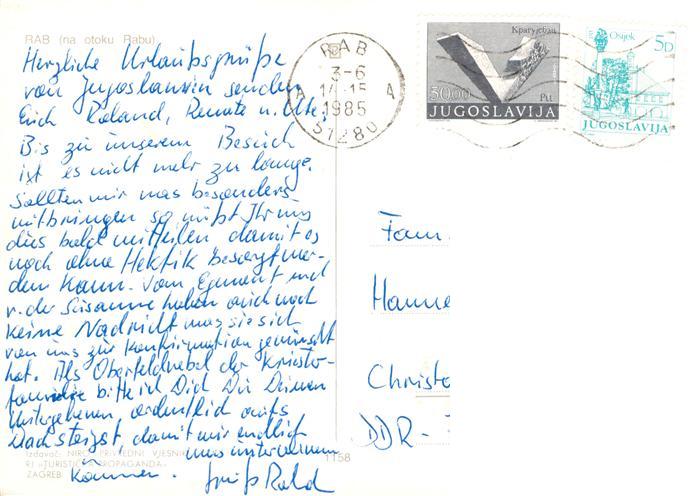 RAB (na otoku Rabu)
Herzliche Urlaubsgrüße
von Jugoslawien senden
Euch Roland, Renate u. Ute.
Bis zu unserem Besuch
ist es nicht mehr zu lange.
Sollten wir was besonders
mitbringen so müßt Ihr uns
dies bald mitteilen damit es
noch ohne Hektik besorgt wer-
den kann. Vom Egmont und
v. der Susanne haben wir noch
keine Nachricht was sie sich
von uns zur Konfirmation gewünscht
hat. Als Oberfeldwebel der
bitte ich Dich Du Deinen
Untergebenen, ordentlich aufs
Dach steigst, damit wir endlich
was unternehmen
können.
Gruß Rold
Izdavač: NIRO PRIVREDNI VJESNIK
RJ »TURISTIČKA PROPAGANDA«
ZAGREB
1158
RAB
3-6
14-15
A A
1985
51280
Крагујевац
50.00
Ptt
JUGOSLAVIJA
Osijek
5D
JUGOSLAVIJA
Fam.
Hanne
Christo
DDR-